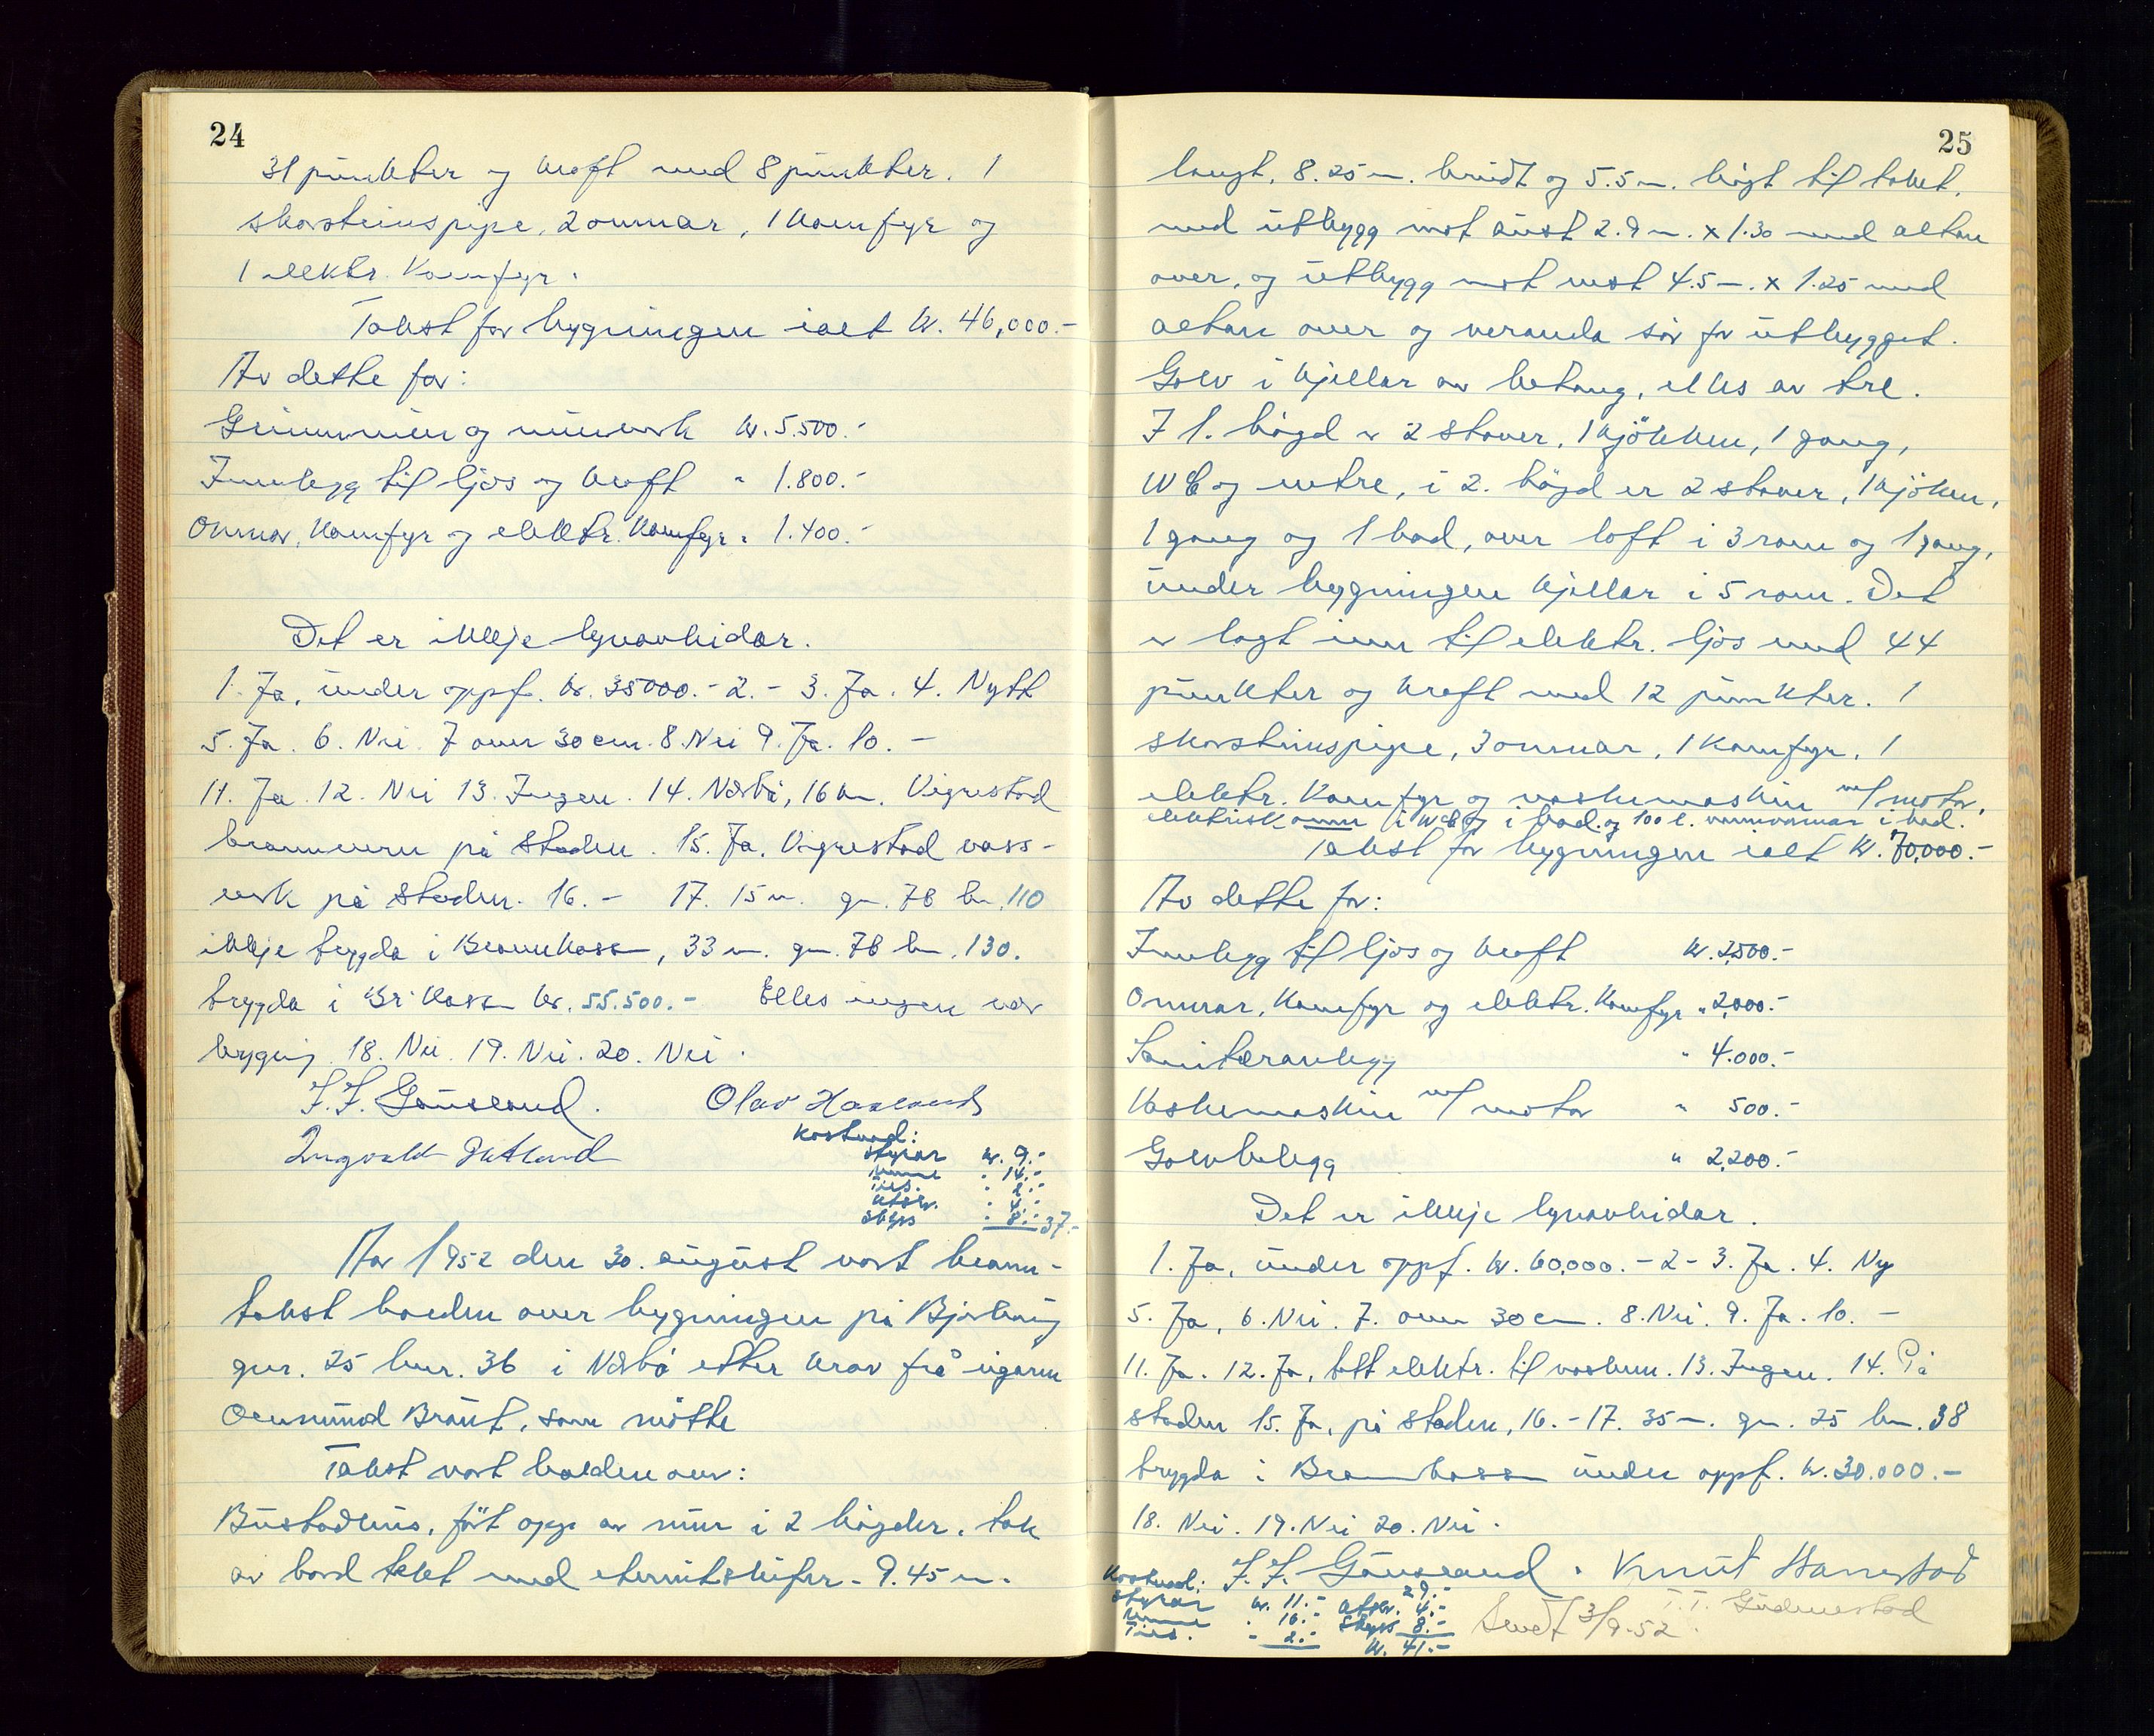 24
31 punkter og kraft med 8 punkter. 1
skorsteinspipe, 2 omnar, 1 komfyr og
1 elektr. komfyr.
Takst for bygningen ialt kr. 46,000.-
Av dette for:
Grunnmur og murverk kr. 5.500.-
Innlegg til ljos og kraft " 1.800.-
Omnar, komfyr og elektr. komfyr " 1.400.-
Det er ikkje lynavleidar.
1. Ja, under oppf. kr. 35000.- 2. - 3. Ja. 4. Nytt
5. Ja. 6. Nei. 7 over 30 cm. 8. Nei 9. Ja. 10. -
11. Ja. 12. Nei 13. Ingen. 14. Nærbö, 16 km. Vigrestad
brannvern på staden. 15. Ja. Vigrestad vass-
verk på staden. 16. - 17. 15 m. gn. 78 bn. 110
ikkje trygda i Brannkassa, 33 m. gn. 78 bn. 130.
trygda i Br. kassa kr. 55.500.- Elles ingen nær
bygning. 18. Nei. 19. Nei. 20. Nei.
J. J. Gausland. Olav Haaland
Ingvald
Kostnad:
Styrar kr. 9.-
Menn " 14.-
Tils. " 2.-
Utskr. " 4.-
Skyss " 8.- 37.-
Aar 1952 den 30. august vart brann-
takst halden over bygningen på Bjorhaug
gnr. 25 bnr. 36 i Nærbö etter krav frå eigaren
Osmund Braut, som mötte
Takst vart halden over:
Bustadhus, fört opp av mur i 2 högder, tak
av bord tekt med eternitskifer. 9.45 m.
25
langt, 8.25 m. breidt og 5.5 m. högt til taket.
med utbygg mot aust 2.9 m. x 1.30 med altan
over, og utbygg mot vest 4.5 m. x 1.25 med
altan over og veranda sör for utbygget.
Golv i kjellar av betong, elles av tre.
I 1. högd er 2 stover, 1 kjökken, 1 gang,
WC og entre, i 2. högd er 2 stover, 1 kjöken,
1 gang og 1 bad, over loft i 3 rom og 1 gang,
under bygningen kjellar i 5 rom. Det
er lagt inn til elektr. ljos med 44
punkter og kraft med 12 punkter. 1
skorsteinspipe, 3 omnar, 1 komfyr, 1
elektr. komfyr og vaskemaskin m/ motor,
elektrisk omn i WC og i bad. og 100 l. varmvannar i bad.
Takst for bygningen ialt kr. 70,000.-
Av dette for:
Innlegg til ljos og kraft kr. 2,500.-
Omnar, komfyr og elektr. komfyr " 2,000.-
Sanitæranlegg " 4.000.-
Vaskemaskin m/ motor " 500.-
Golvbelegg " 2,200.-
Det er ikkje lynavleidar.
1. Ja, under oppf. kr. 60,000.- 2 - 3. Ja. 4. Ny
5. Ja, 6. Nei. 7. over 30 cm. 8. Nei. 9. Ja. 10. -
11. Ja. 12. Ja, tett elektr. til vasken. 13. Ingen. 14. På
staden 15. Ja, på staden, 16. - 17. 35 m. gn. 25 bn. 38
trygda i Brannkassa under oppf. kr. 30.000.-
18. Nei. 19. Nei 20. Nei.
J. J. Gausland. Knut Hanestad
T. T. Gudmestad
Kostnad: 29.-
Styrar kr. 11.- Utskr. 4.-
Menn " 16.- Skyss 8.-
Tils. " 2.- kr. 41.-
Sendt 3/9-52.